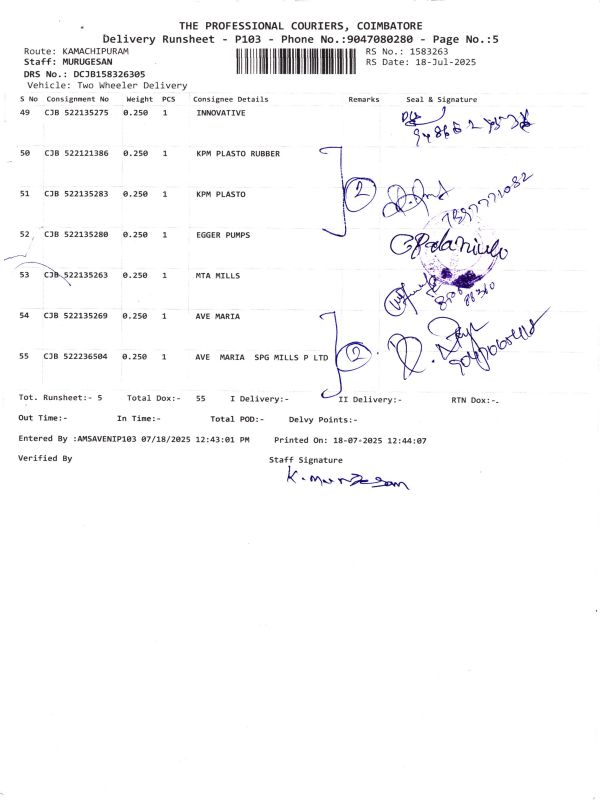 THE PROFESSIONAL COURIERS, COIMBATORE
Delivery Runsheet - P103 - Phone No.:9047080280 - Page No.:5
Route: KAMACHIPURAM RS No.: 1583263
Staff: MURUGESAN RS Date: 18-Jul-2025
DRS No.: DCJB158326305
Vehicle: Two Wheeler Delivery
S No Consignment No Weight PCS Consignee Details Remarks Seal & Signature
49 CJB 522135275 0.250 1 INNOVATIVE
50 CJB 522121386 0.250 1 KPM PLASTO RUBBER
2
51 CJB 522135283 0.250 1 KPM PLASTO
52 CJB 522135280 0.250 1 EGGER PUMPS
53 CJB 522135263 0.250 1 MTA MILLS
54 CJB 522135269 0.250 1 AVE MARIA
55 CJB 522236504 0.250 1 AVE MARIA SPG MILLS P LTD 2
Tot. Runsheet:- 5 Total Dox:- 55 I Delivery:- II Delivery:- RTN Dox:-.
Out Time:- In Time:- Total POD:- Delvy Points:-
Entered By :AMSAVENIP103 07/18/2025 12:43:01 PM Printed On: 18-07-2025 12:44:07
Verified By Staff Signature